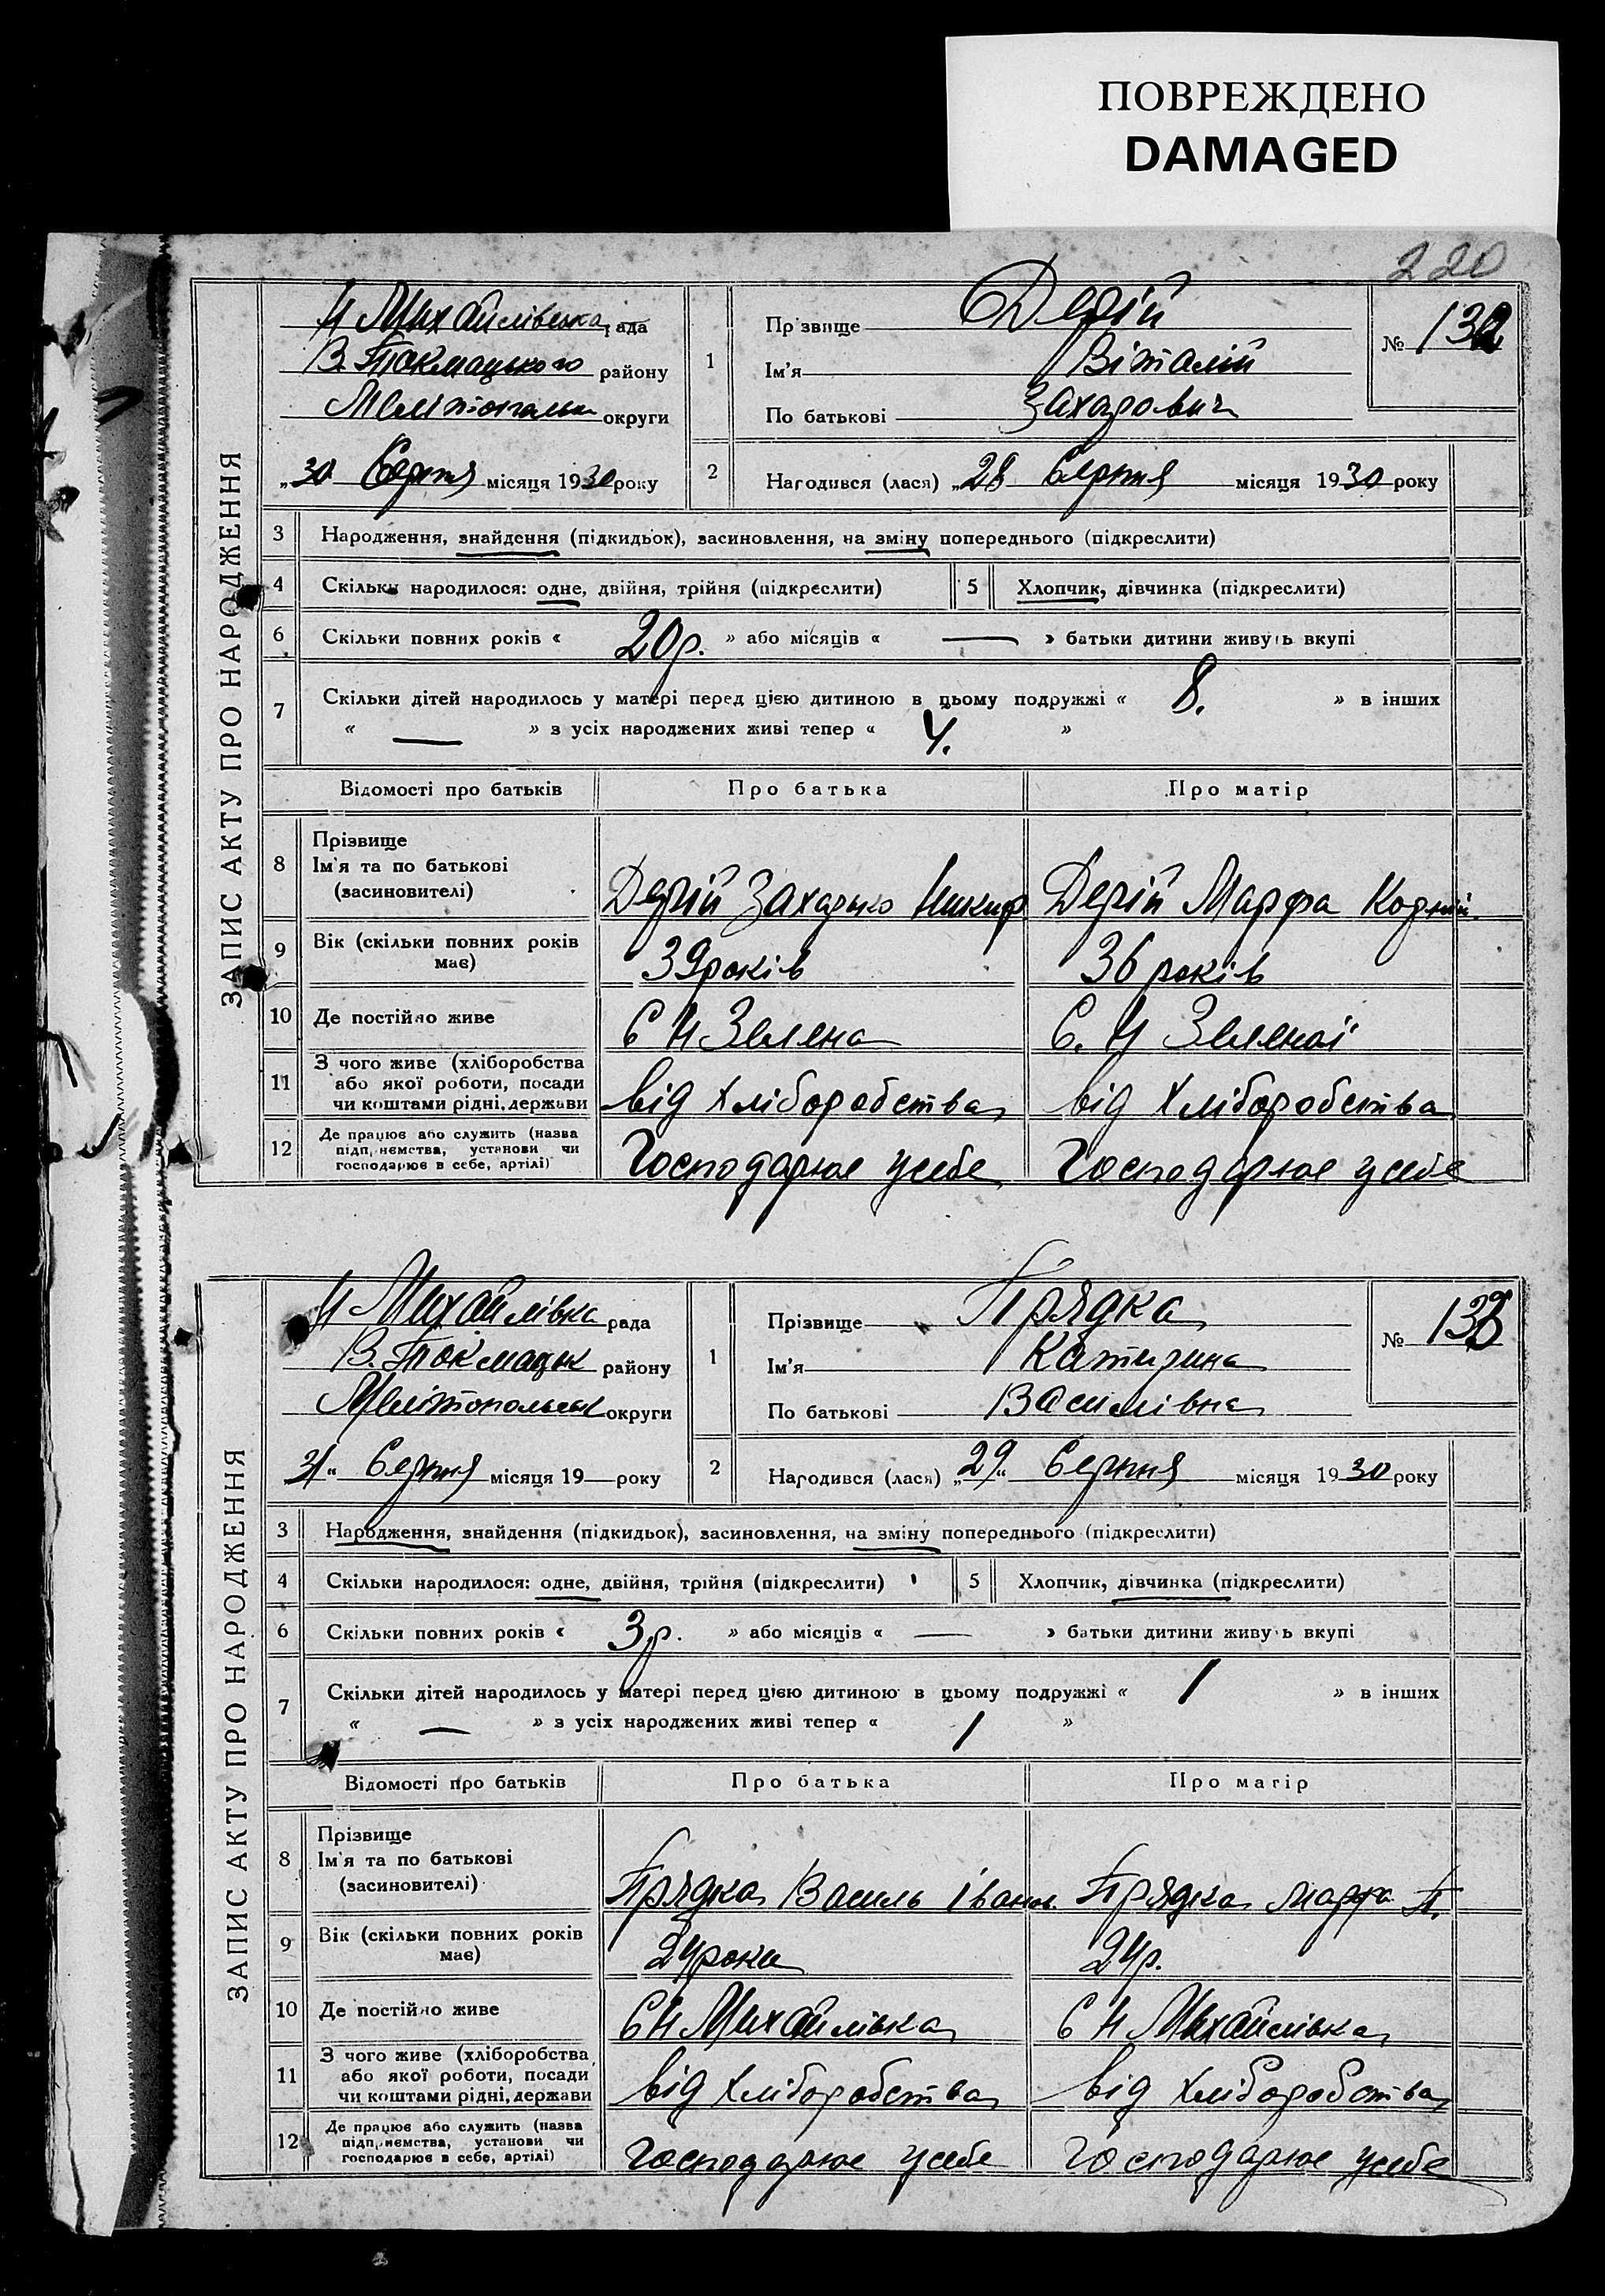 ПОВРЕЖДЕНО
DAMAGED
220
ЗАПИС АКТУ ПРО НАРОДЖЕННЯ
Н Михайлівська рада
В. Токмацького району
округи
„30 Серпня місяця 1930 року
1
Прізвище Дерій
Ім'я Віталій
По батькові Захарович
№ 132
2
Народився (лася) „28 Серпня місяця 1930 року
3 Народження, знайдення (підкидьок), засиновлення, на зміну попереднього (підкреслити)
4 Скільки народилося: одне, двійня, трійня (підкреслити) 5 Хлопчик, дівчинка (підкреслити)
6 Скільки повних років « 20 р. » або місяців « — » батьки дитини живуть вкупі
7 Скільки дітей народилось у матері перед цією дитиною в цьому подружжі « 8. » в інших
« — » з усіх народжених живі тепер « 4. »
Відомості про батьків Про батька Про матір
8 Прізвище
Ім'я та по батькові
(засиновителі)
Дерій Захарько Никиф. Дерій Марфа Корній.
9 Вік (скільки повних років
має)
39 років 36 років
10 Де постійно живе С Н Зелена С. Н Зеленої
11 З чого живе (хліборобства
або якої роботи, посади
чи коштами рідні, держави
від хліборобства від хліборобства
12 Де працює або служить (назва
підприємства, установи чи
господарює в себе, артілі)
Господарює у себе Господарює у себе
ЗАПИС АКТУ ПРО НАРОДЖЕННЯ
Н Михайлівка рада
В. Токмацьк району
Мелітопольськ округи
31" Серпня місяця 19— року
1
Прізвище Прядка
Ім'я Катирина
По батькові Василівна
№ 133
2
Народився (лася) „29" Серпня місяця 1930 року
3 Народження, знайдення (підкидьок), засиновлення, на зміну попереднього (підкреслити)
4 Скільки народилося: одне, двійня, трійня (підкреслити) 5 Хлопчик, дівчинка (підкреслити)
6 Скільки повних років « 3 р. » або місяців « — » батьки дитини живуть вкупі
7 Скільки дітей народилось у матері перед цією дитиною в цьому подружжі « 1 » в інших
« — » з усіх народжених живі тепер « 1 »
Відомості про батьків Про батька Про матір
8 Прізвище
Ім'я та по батькові
(засиновителі)
Прядка Василь Іванов. Прядка Марфа П.
9 Вік (скільки повних років
має)
24 роки 24 р.
10 Де постійно живе С Н Михайлівка С Н Михайлівка
11 З чого живе (хліборобства
або якої роботи, посади
чи коштами рідні, держави
від хліборобства від хліборобства
12 Де працює або служить (назва
підприємства, установи чи
господарює в себе, артілі)
Господарює у себе Господарює у себе